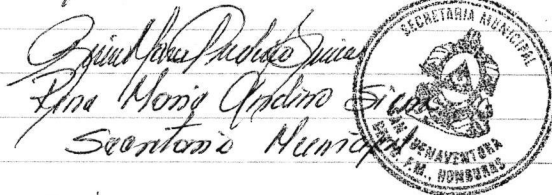 Rosa Maria Andino Sierra
Secretaria Municipal
SECRETARIA MUNICIPAL
SAN BUENAVENTURA
F.M., HONDURAS